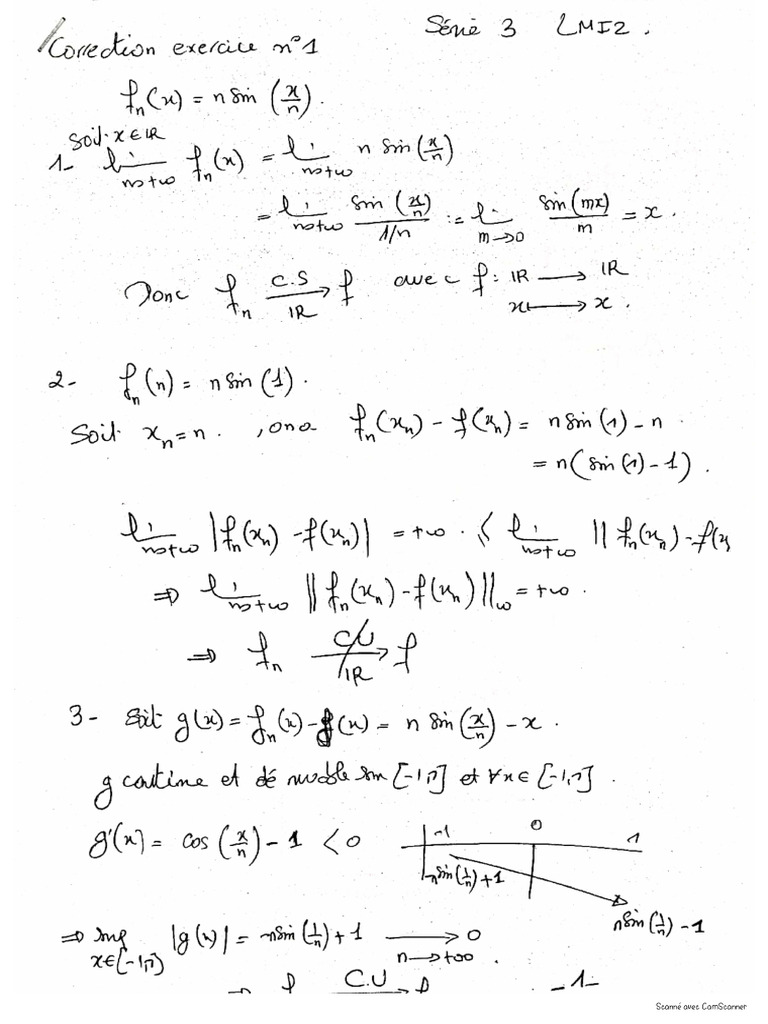 Série 3 LMI2.
Correction exercice n°1
fₙ(x) = n sin (x/n).
soit x ∈ IR
1- lim n→+∞ fₙ(x) = lim n→+∞ n sin(x/n)
= lim n→+∞ sin(x/n) / 1/n := lim m→0 sin(mx)/m = x.
Donc fₙ C.S/IR → f avec f: IR ⟶ IR
x ⟼ x.
2- fₙ(n) = n sin(1).
Soit xₙ = n. , ona fₙ(xₙ) - f(xₙ) = n sin(1) - n
= n(sin(1) - 1).
lim n→+∞ |fₙ(xₙ) - f(xₙ)| = +∞. ≤ lim n→+∞ ||fₙ(xₙ) - f(x
⇒ lim n→+∞ ||fₙ(xₙ) - f(xₙ)||∞ = +∞.
⇒ fₙ C/U/IR → f
3- Soit g(x) = fₙ(x) - f(x) = n sin(x/n) - x.
g continue et dérivable sur [-1,1] et ∀x ∈ [-1,1].
g'(x) = cos(x/n) - 1 < 0
-1 0 1
-n sin(1/n) + 1
n sin(1/n) - 1
⇒ sup x∈[-1,1] |g(x)| = -n sin(1/n) + 1 ⟶ n→+∞ 0
.
⇒ f C.U → f
-1-
Scanné avec CamScanner